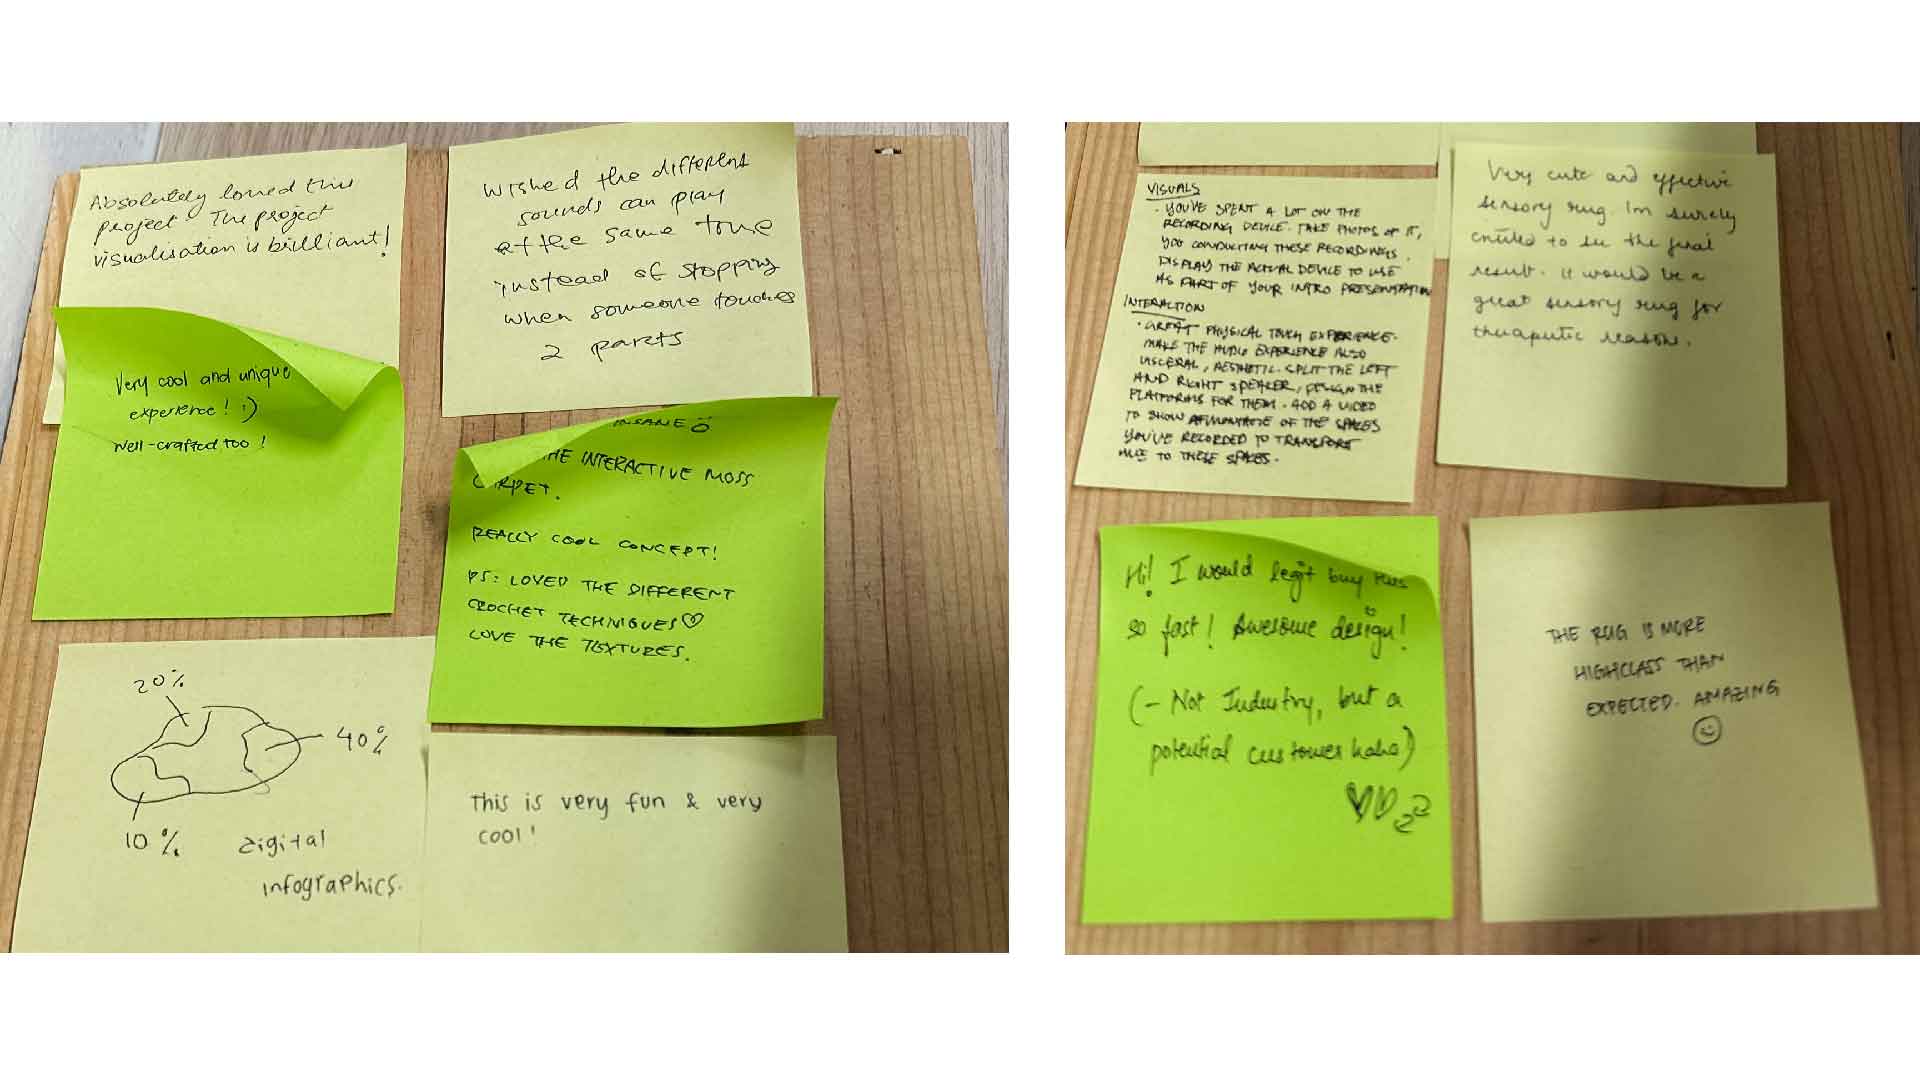 Absolutely loved this
project. The project
visualisation is brilliant!
Wished the different
sounds can play
at the same time
instead of stopping
when someone touches
2 parts
Very cool and unique
experience! :)
Well-crafted too!
INSANE
THE INTERACTIVE MOSS
CARPET.
REALLY COOL CONCEPT!
PS: LOVED THE DIFFERENT
CROCHET TECHNIQUES ♡
LOVE THE TEXTURES.
20%
40%
10%
digital
infographics.
This is very fun & very
cool!
VISUALS
· YOU'VE SPENT A LOT ON THE
RECORDING DEVICE. TAKE PHOTOS OF IT,
YOU CONDUCTING THESE RECORDINGS.
DISPLAY THE ACTUAL DEVICE TO USE
AS PART OF YOUR INTRO PRESENTATION
INTERACTION
· GREAT PHYSICAL TOUCH EXPERIENCE.
MAKE THE AUDIO EXPERIENCE ALSO
VISCERAL, AESTHETIC. SPLIT THE LEFT
AND RIGHT SPEAKER, DESIGN THE
PLATFORMS FOR THEM. ADD A VIDEO
TO SHOW A MONTAGE OF THE SPACES
YOU'VE RECORDED TO TRANSPORT
TO THESE SPACES.
Very cute and effective
sensory rug. Im surely
excited to see the final
result. it would be a
great sensory rug for
therapeutic reason.
Hi! I would legit buy this
so fast! Awesome design!
(- Not Industry, but a
potential customer haha)
THE RUG IS MORE
HIGHCLASS THAN
EXPECTED. AMAZING